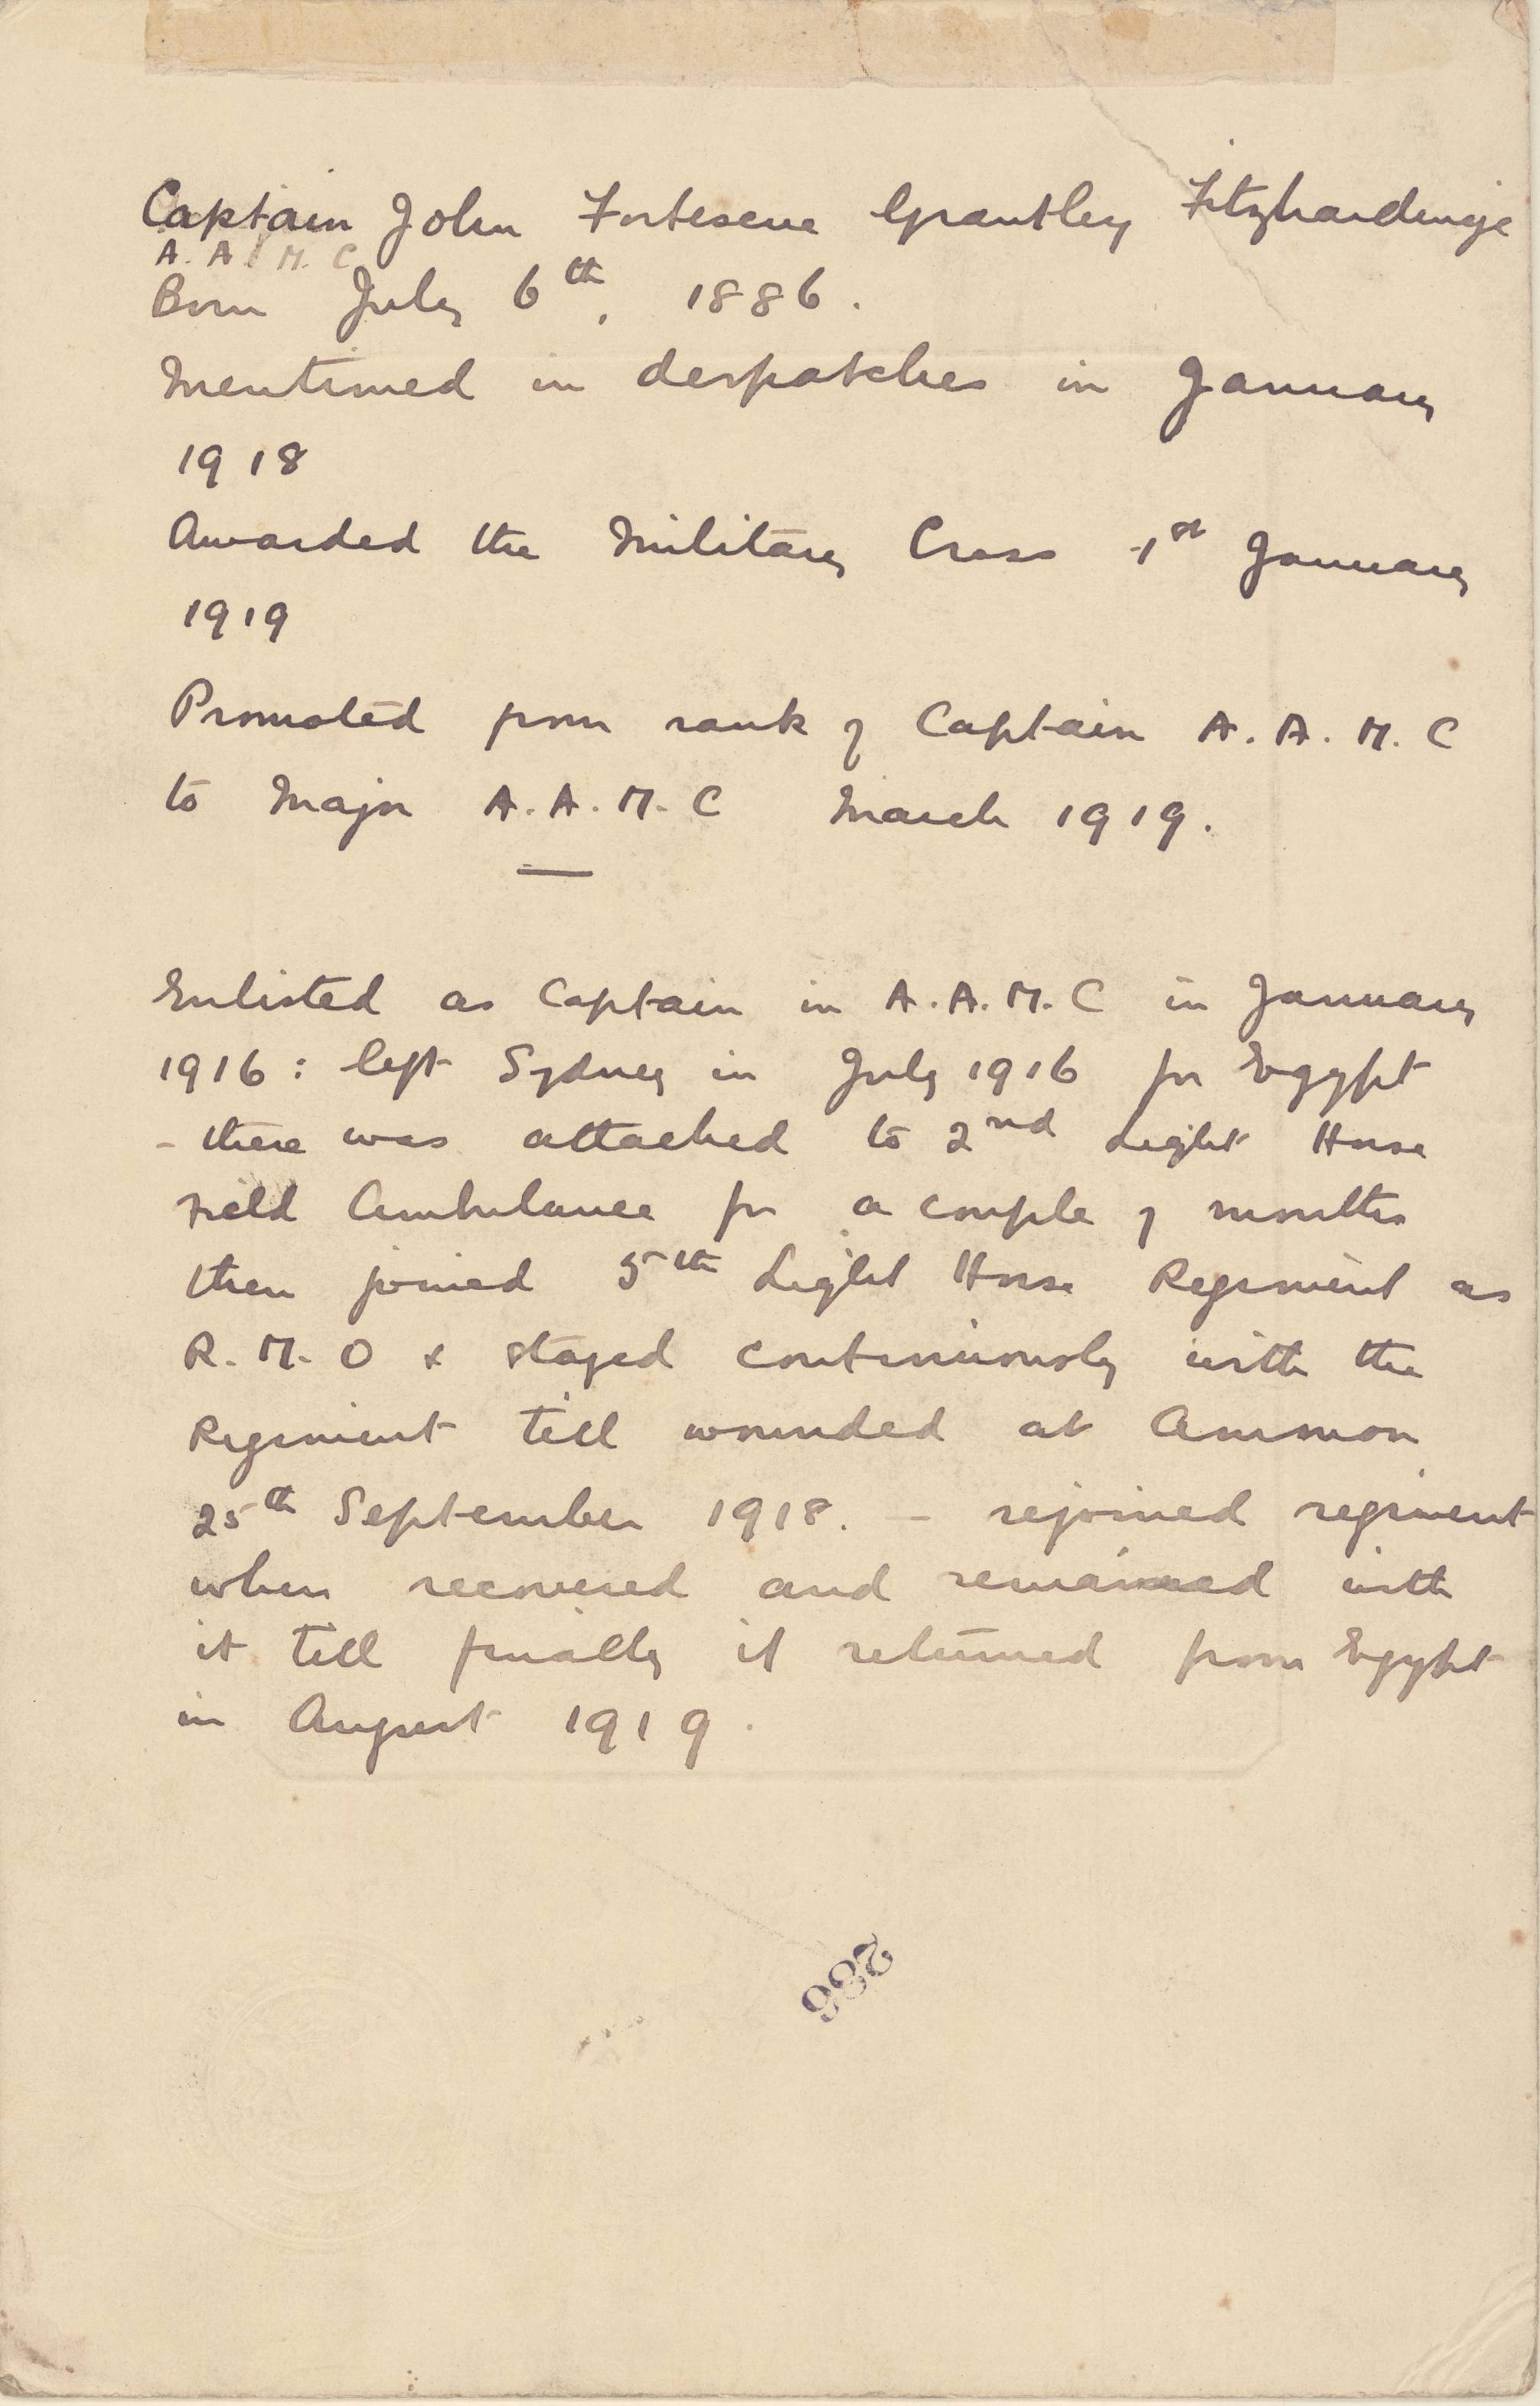 Captain John Fortescue Grantley Fitzhardinge
A. A. M. C
Born July 6th, 1886.
Mentioned in despatches in January
1918
Awarded the Military Cross 1st January
1919
Promoted from rank of Captain A. A. M. C
to Major A. A. M. C March 1919.
Enlisted as Captain in A. A. M. C in January
1916: left Sydney in July 1916 for Egypt
- there was attached to 2nd Light Horse
Field Ambulance for a couple of months
then joined 5th Light Horse Regiment as
R. M. O & stayed continuously with the
Regiment till wounded at Ammon
25th September 1918. - rejoined regiment
when recovered and remained with
it till finally it returned from Egypt
in August 1919.
286